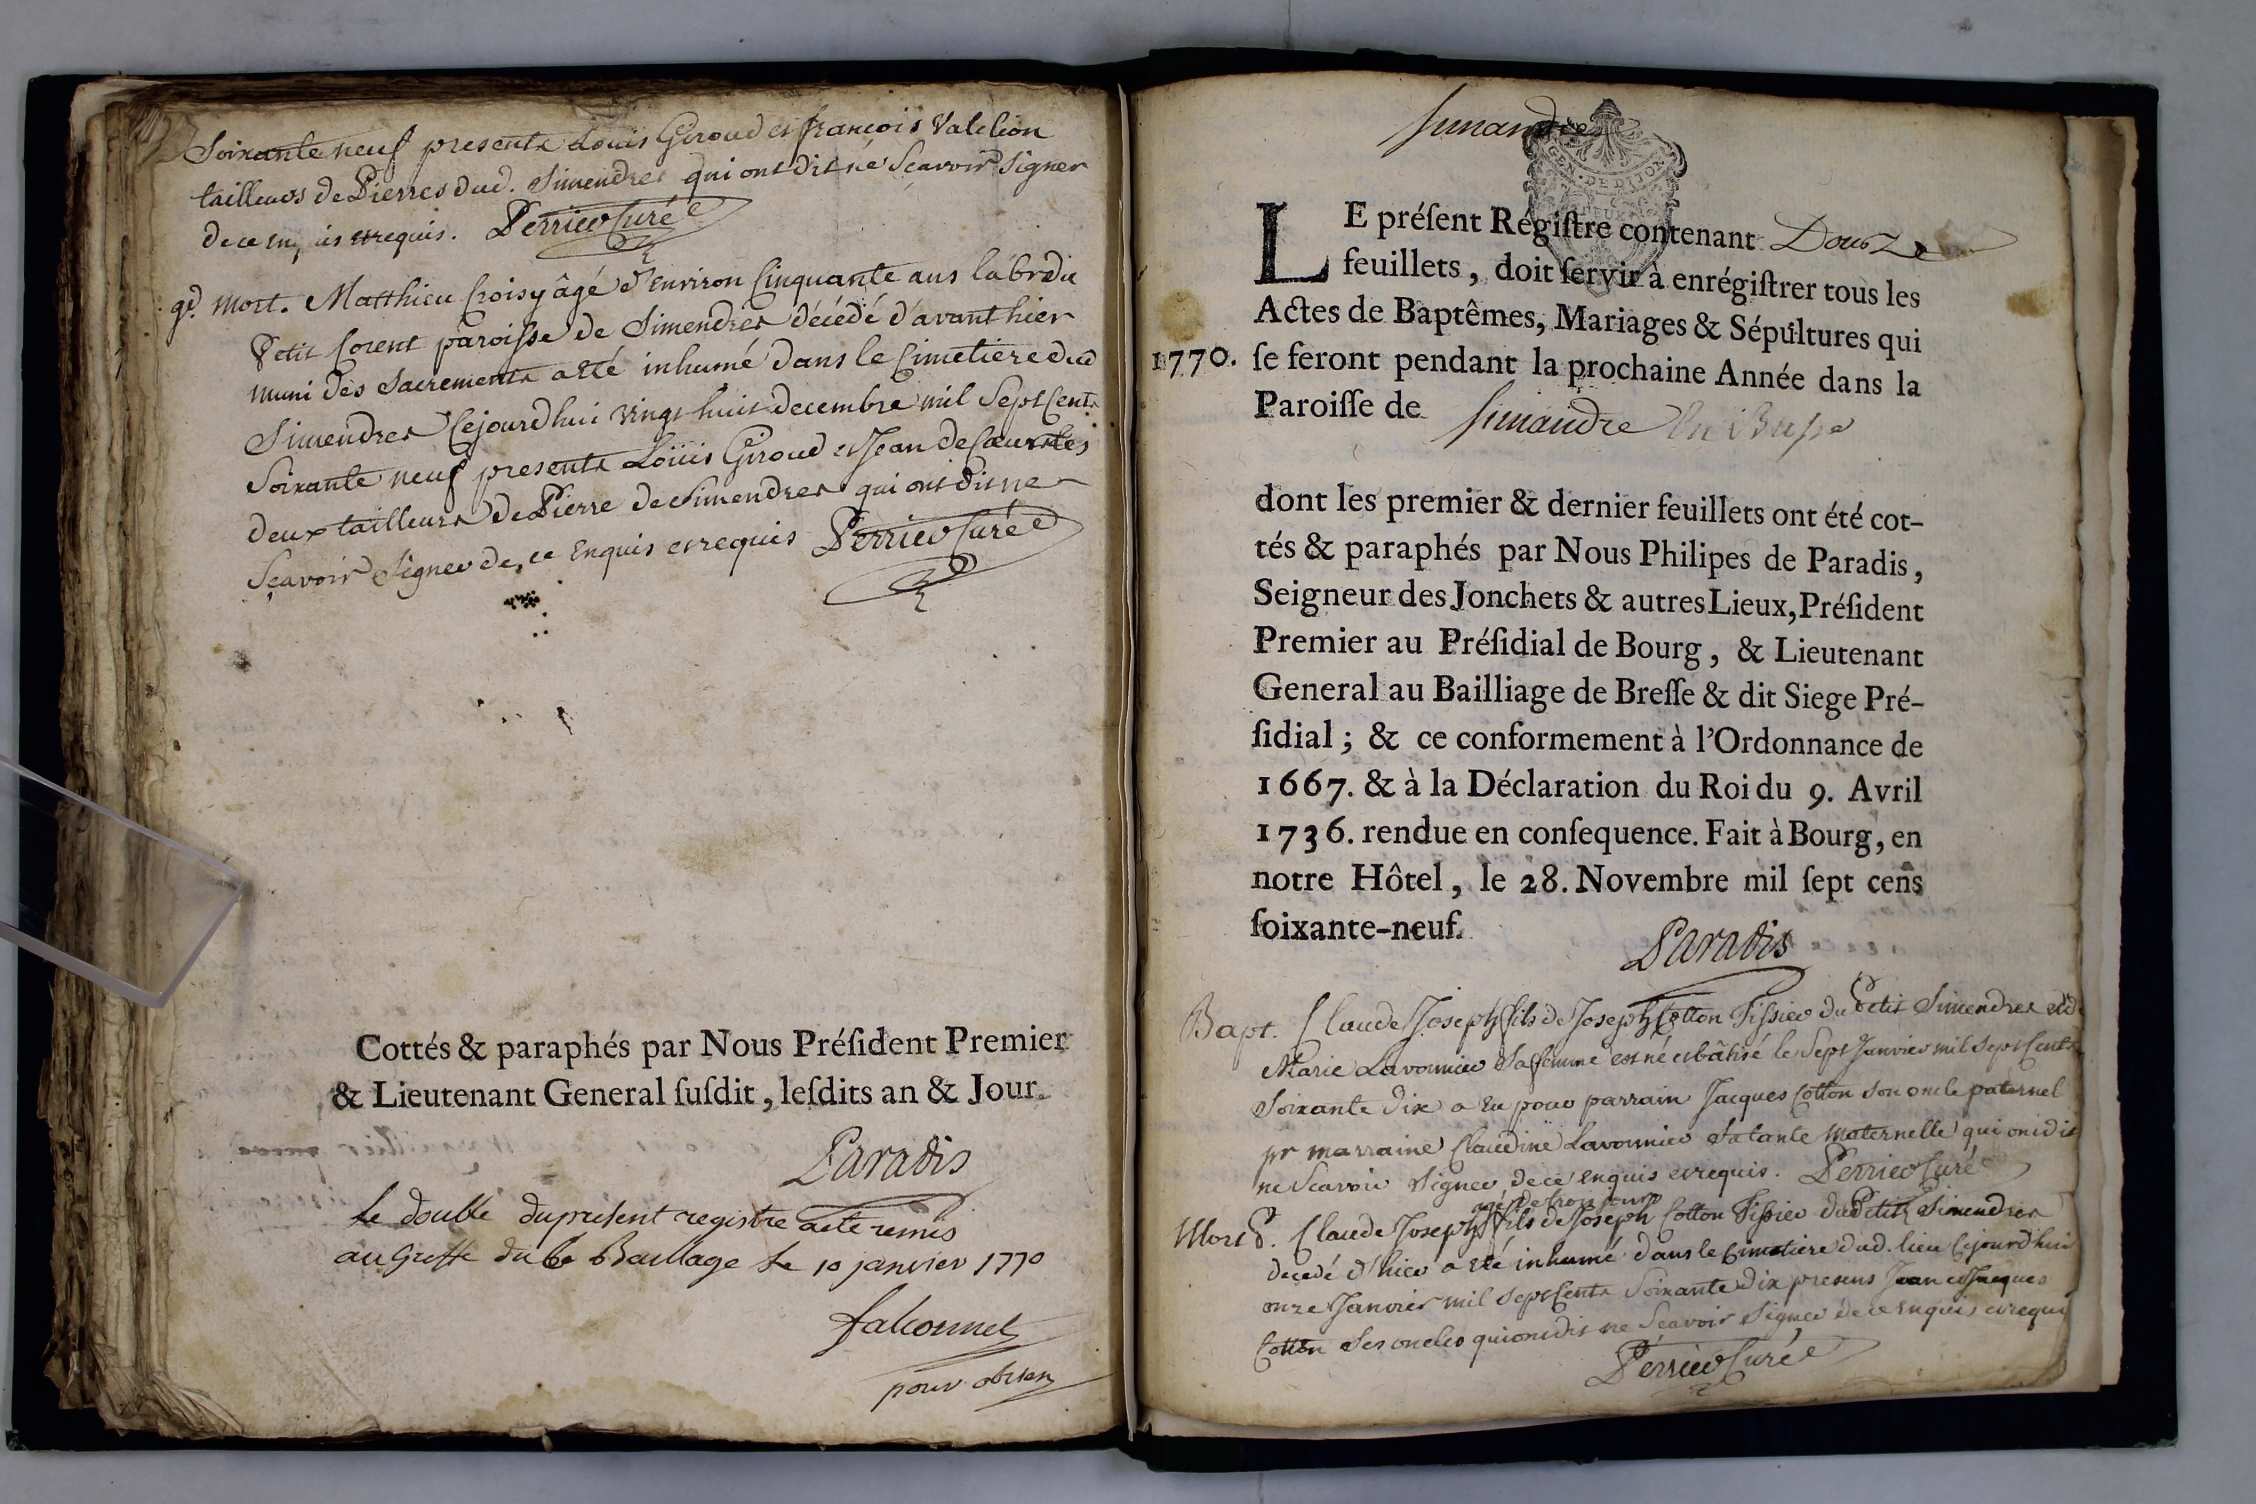 Soixante neuf presents Louis Giroud et françois Valelion
tailleurs de Pierres dud. Simendres qui ont dit ne Sçavoir Signer
de ce enquis et requis. Perrier Curé
gd. mort. Matthieu Croisy âgé d'environ Cinquante ans labr du
Petit Corent paroisse de Simendres décédé d'avant hier
muni des Sacrements a été inhumé dans le Cimetiere dud
Simendres Cejourdhui vingt huit decembre mil Sept Cents
Soixante neuf presents Loüis Giroud et Jean de Coeurstes
deux tailleurs de Pierre de Simendres qui ont dit ne
Sçavoir Signer de, ce Enquis et requis Perrier Curé
Cottés & paraphés par Nous Préſident Premier
& Lieutenant General ſuſdit, leſdits an & Jour.
Paradis
Le double du present registre a ete remis
au Greffe du Baillage le 10 janvier 1770
falconnet
simandre
GEN. DE DIJON
LE préſent Régiſtre contenant Douze
feuillets, doit ſervir à enrégiſtrer tous les
Actes de Baptêmes, Mariages & Sépultures qui
1770. ſe feront pendant la prochaine Année dans la
Paroiſſe de Simandre
dont les premier & dernier feuillets ont été cot-
tés & paraphés par Nous Philipes de Paradis,
Seigneur des Jonchets & autres Lieux, Préſident
Premier au Préſidial de Bourg, & Lieutenant
General au Bailliage de Breſſe & dit Siege Pré-
ſidial; & ce conformement à l'Ordonnance de
1667. & à la Déclaration du Roi du 9. Avril
1736. rendue en conſequence. Fait à Bourg, en
notre Hôtel, le 28. Novembre mil ſept cens
ſoixante-neuf.
Paradis
Bapt. Claude Joseph fils de Joseph Cotton Tissier du Petit Simendres et de
Marie Lavornier Sa femme est né et bâtisé le Sept Janvier mil Sept Cents
Soixante dix a Eu pour parrain Jacques Cotton son oncle paternel
pr marraine Claudine Lavornier Sa tante maternelle qui ont dit
ne Scavoir Signer de ce enquis et requis. Perrier Curé
agé de trois jours
Mort P. Claude Joseph fils de Joseph Cotton Tissier du Petit Simendres
decedé d'hier a été inhumé dans le Cimetiere dud. lieu Cejourd'hui
onze Janvier mil Sept Cents Soixante dix presens Jean et Jacques
Cotton Ses oncles qui ont dit ne Scavoir Signer de ce enquis et requis
Perrier Curé